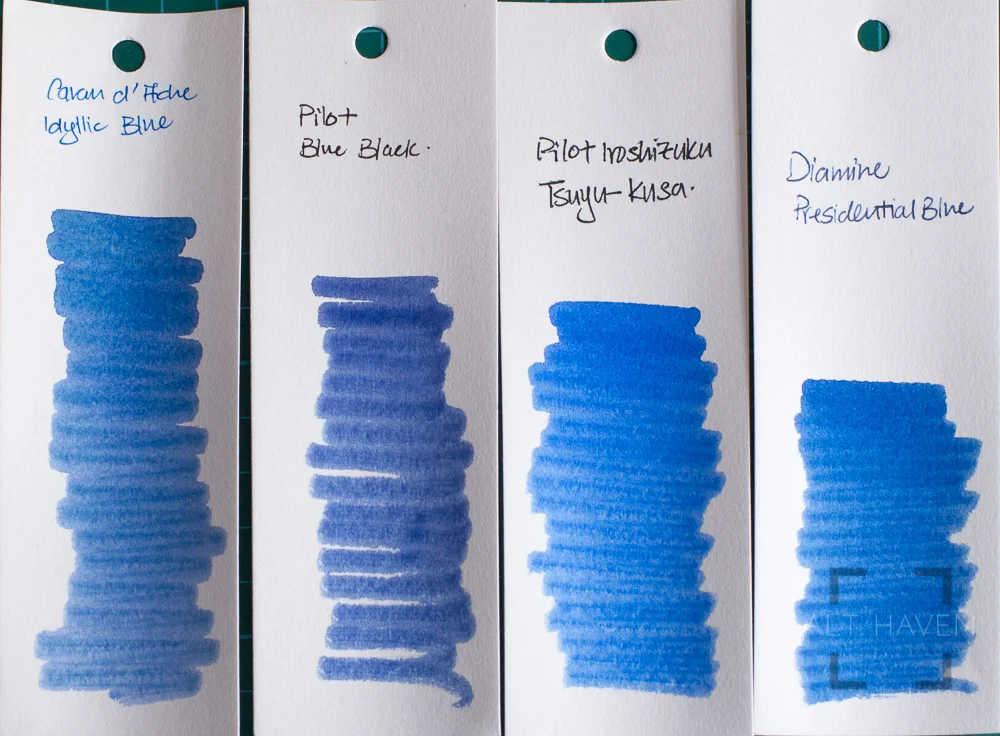 Caran d'Ache
Idyllic Blue
Pilot
Blue Black.
Pilot Iroshizuku
Tsuyu-kusa.
Diamine
Presidential Blue
ALT HAVEN